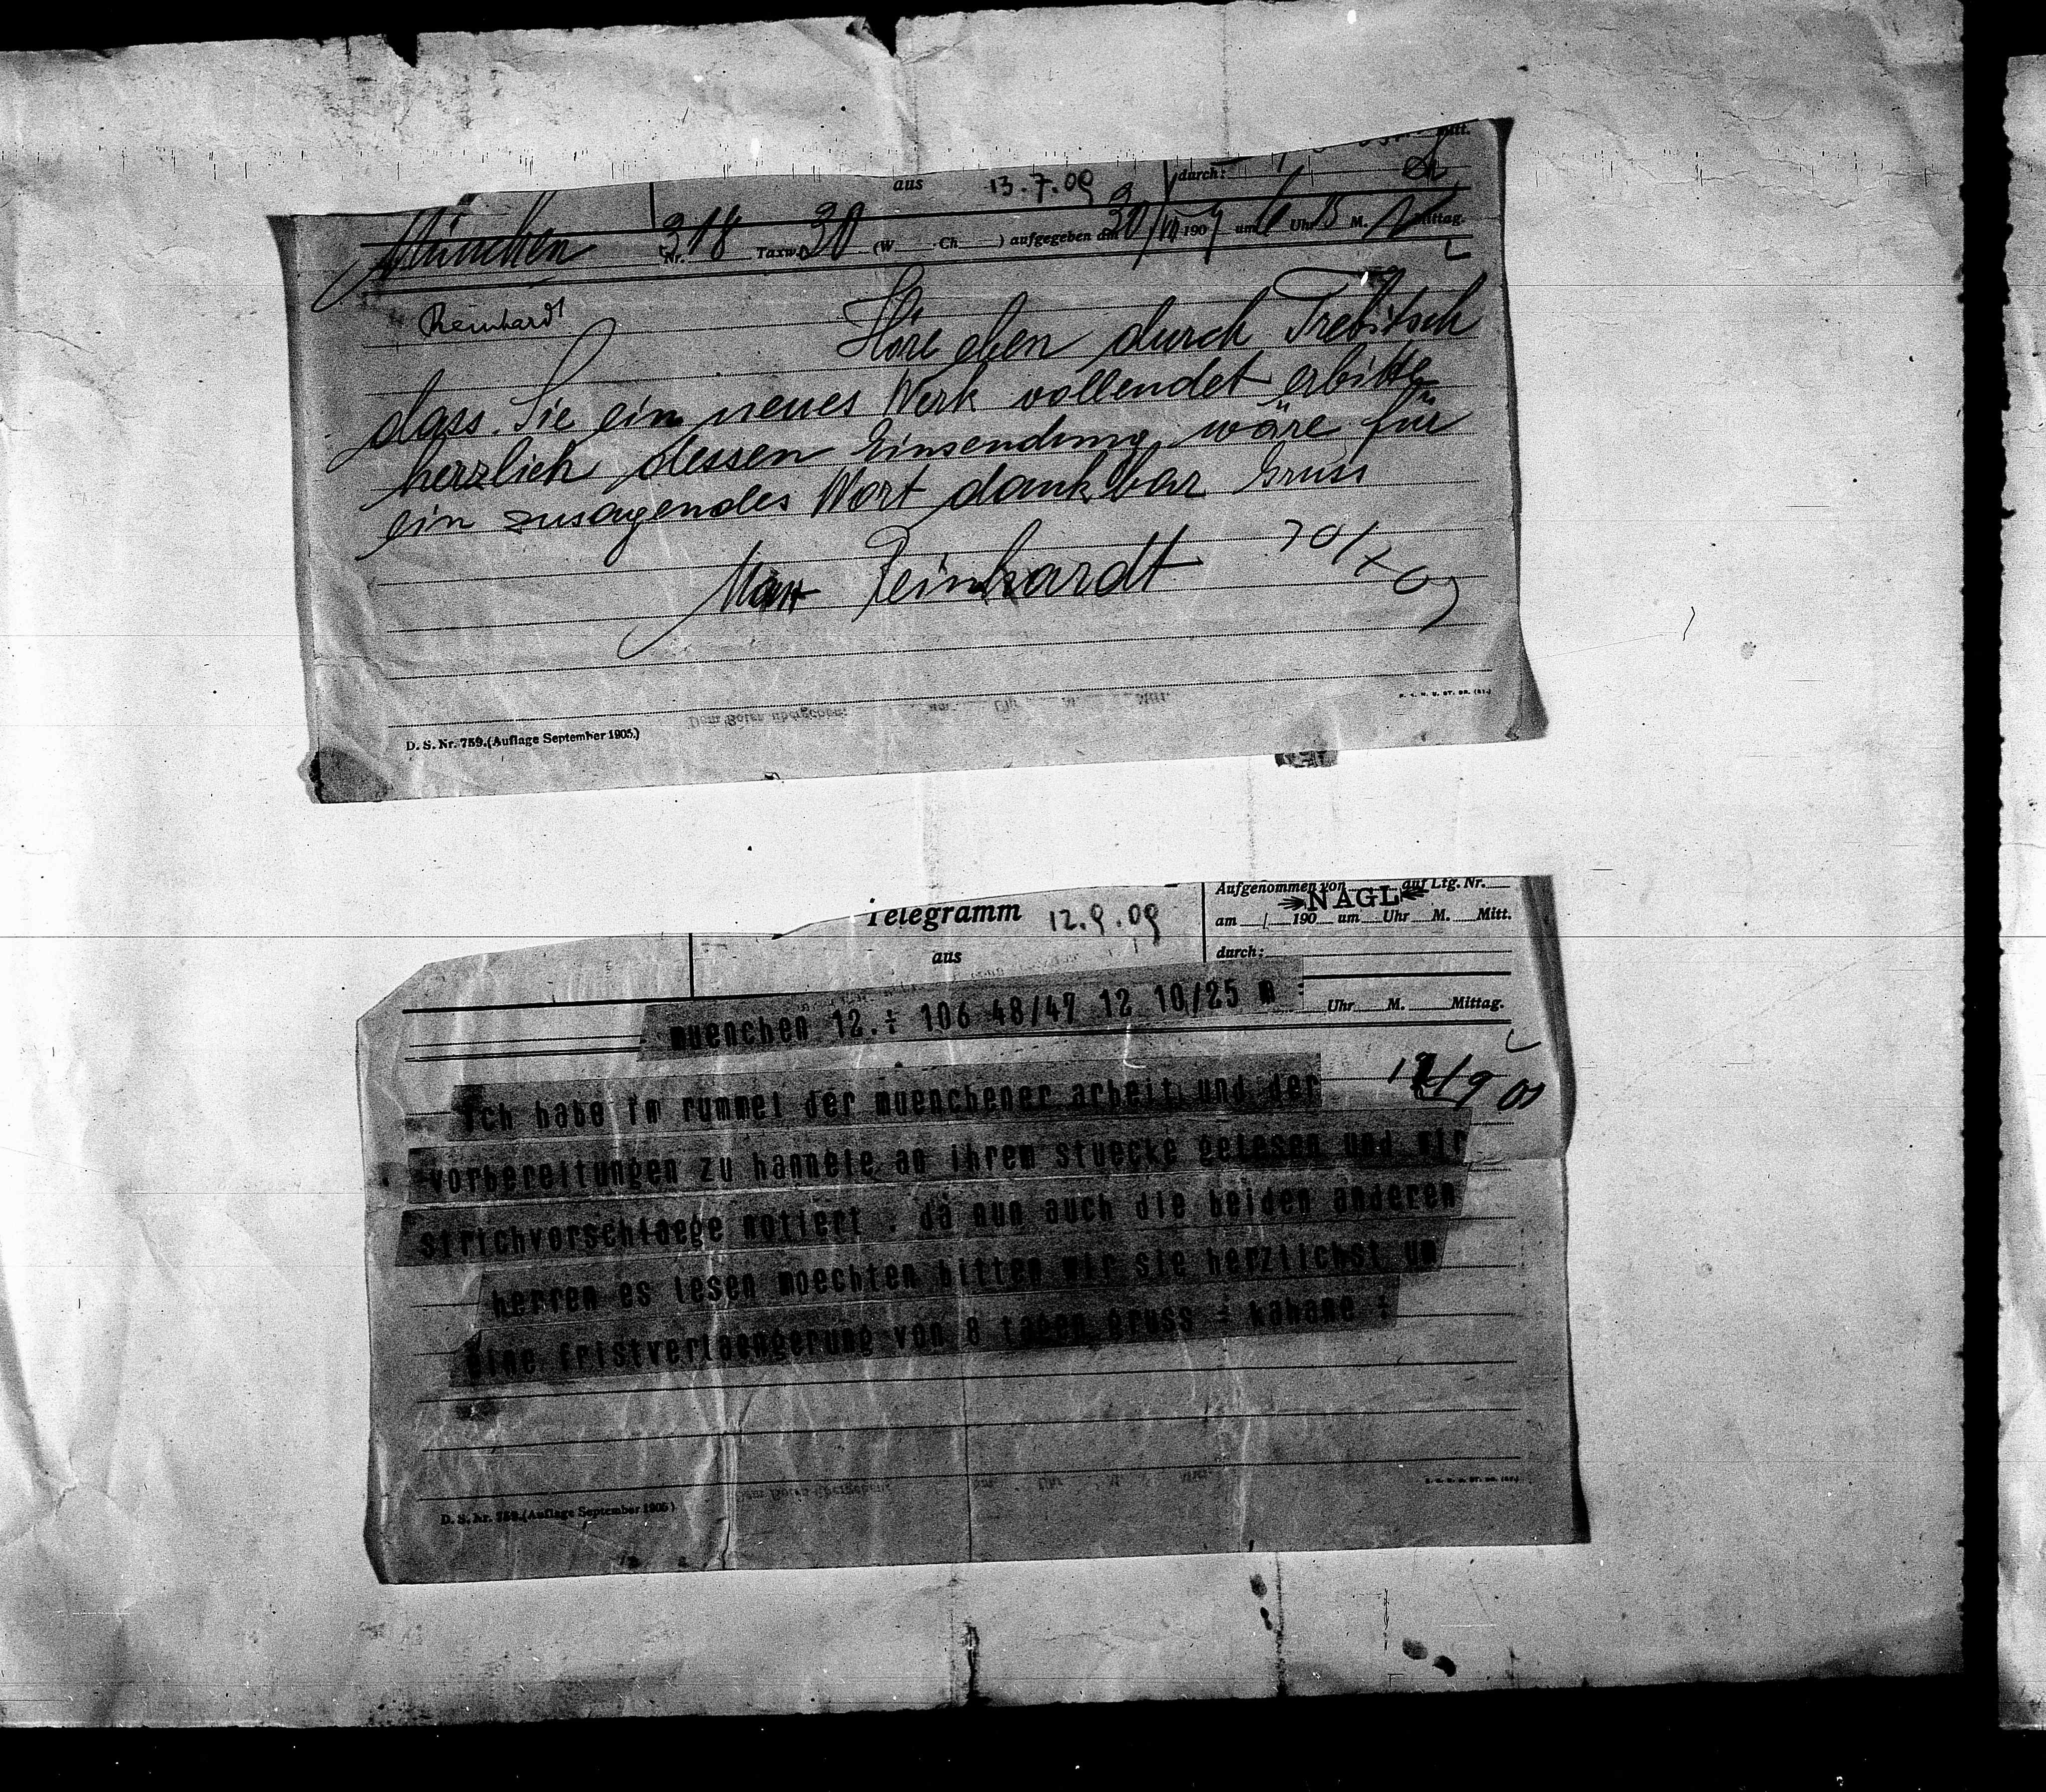 aus 13.7.09 durch:
München Nr. 318 Taxw. 30 (W Ch ) aufgegeben am 30/VII 1909 um 6 Uhr 15 M. N Mittag.
Reinhardt
Höre eben durch Trebitsch
dass Sie ein neues Werk vollendet erbitte
herzlich dessen Einsendung wäre für
ein zusagendes Wort dankbar Gruss
Max Reinhardt
D. S. Nr. 759. (Auflage September 1905.)
Aufgenommen von auf Ltg. Nr.
NAGL
Telegramm 12.9.09
am / 190 um Uhr M. Mitt.
aus durch:
muenchen 12.÷ 106 48/47 12 10/25 m Uhr M. Mittag.
12/9 09
ich habe im rummel der muenchener arbeit und der
vorbereitungen zu hannele an ihrem stuecke gelesen und mir
strichvorschlaege notiert . da nun auch die beiden anderen
herren es lesen moechten bitten wir sie herzlichst um
eine fristverlaengerung von 8 tagen gruss ÷ kahane ÷
D. S. Nr. 759. (Auflage September 1905)